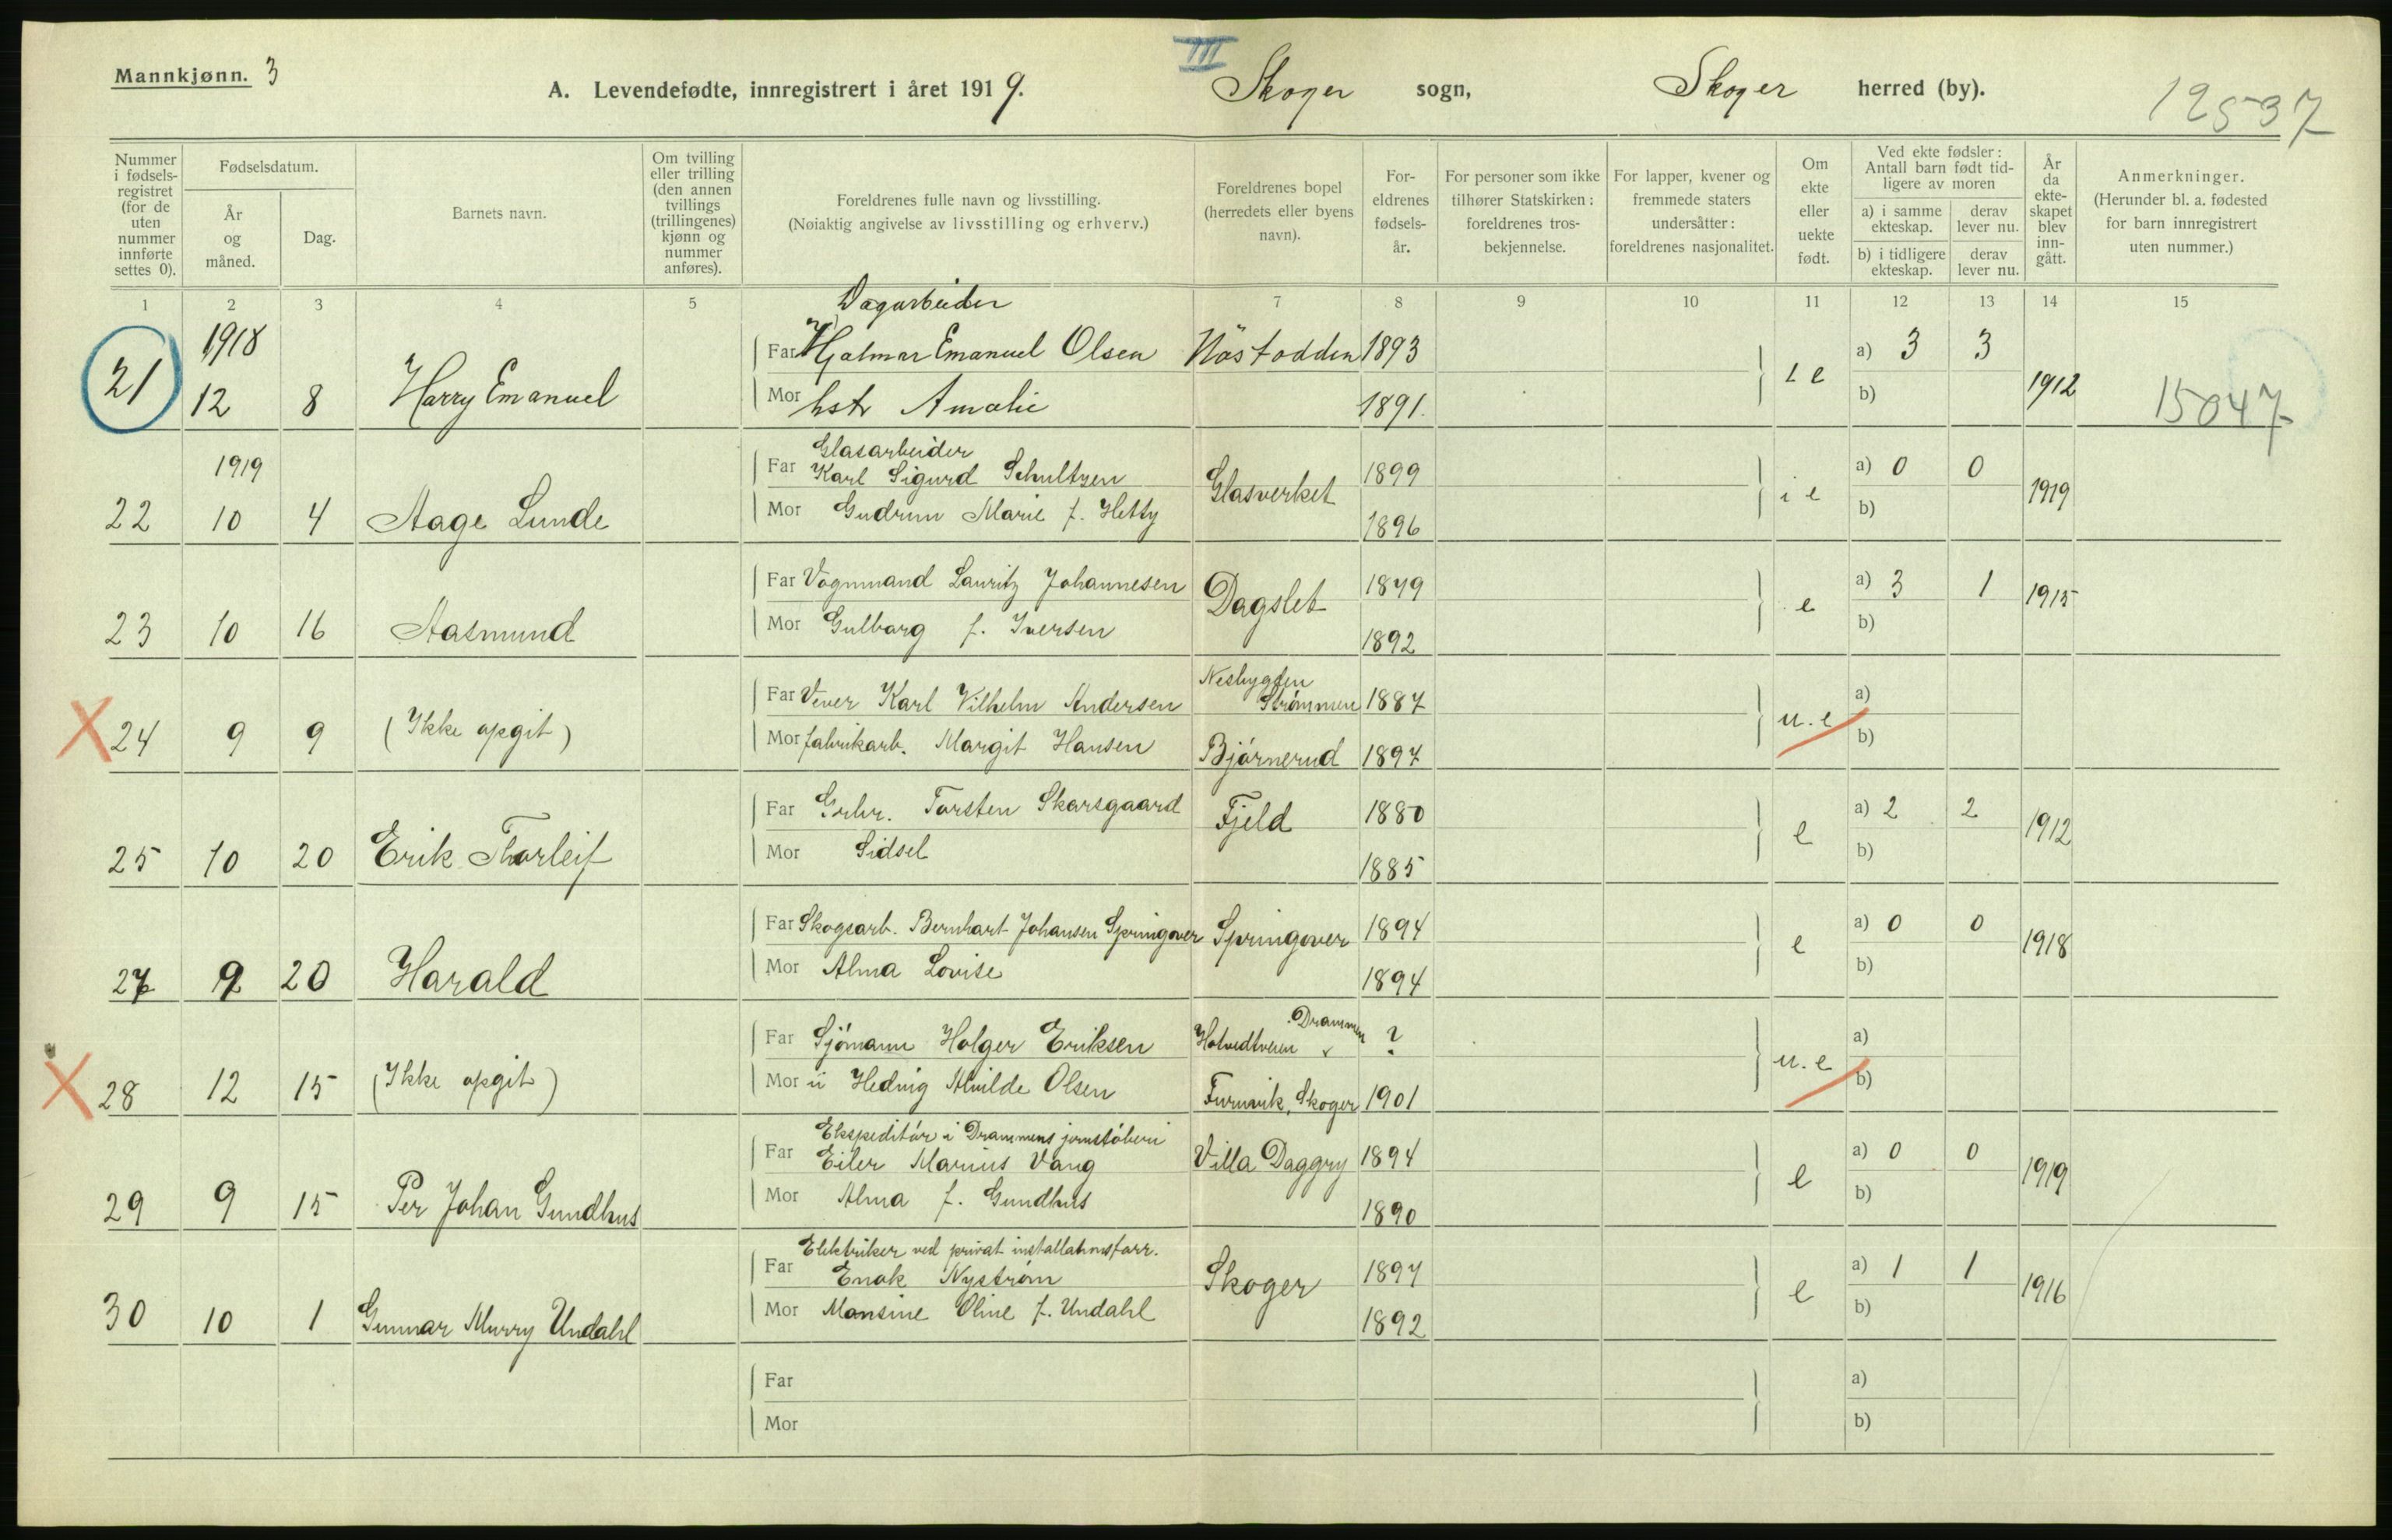 Mannkjønn. 3
III
A. Levendefødte, innregistrert i året 1919. Skoger sogn, Skoger herred (by).
12537
Nummer i fødsels-registret (for de uten nummer innførte settes 0).
Fødselsdatum.
År og måned.
Dag.
Barnets navn.
Om tvilling eller trilling (den annen tvillings (trillingenes) kjønn og nummer anføres).
Foreldrenes fulle navn og livsstilling.
(Nøiaktig angivelse av livsstilling og erhverv.)
Foreldrenes bopel (herredets eller byens navn).
For-eldrenes fødsels-år.
For personer som ikke tilhører Statskirken: foreldrenes tros-bekjennelse.
For lapper, kvener og fremmede staters undersåtter: foreldrenes nasjonalitet.
Om ekte eller uekte født.
Ved ekte fødsler: Antall barn født tid-ligere av moren
a) i samme ekteskap.
derav lever nu.
b) i tidligere ekteskap.
derav lever nu.
År da ekte-skapet blev inn-gått.
Anmerkninger.
(Herunder bl. a. fødested for barn innregistrert uten nummer.)
1 2 3 4 5 7 8 9 10 11 12 13 14 15
Dagarbeider
1918
21 12 8 Harry Emanuel
Far Hjalmar Emanuel Olsen Nøstodden 1893 e a) 3 3
Mor hstr Amalie 1891. b) 1912 15047
1919
Glasarbeider
22 10 4 Aage Lunde
Far Karl Sigurd Schultzen Glasverket 1899 i e a) 0 0
Mor Gudrun Marie f. Hetty 1896 b) 1919
23 10 16 Aasmund
Far Vognmand Lauritz Johannesen Dagslet 1879 e a) 3 1 1915
Mor Gulborg f. Iversen 1892 b)
X 24 9 9 (Ikke opgit)
Far Vever Karl Vilhelm Andersen Nesbygden Strømmen 1887 u.e a)
Mor fabrikarb. Margit Hansen Bjørnerud 1897 b)
25 10 20 Erik Thorleif
Far Grbr. Torsten Skarsgaard Fjeld 1880 e a) 2 2 1912
Mor Sidsel 1885 b)
27 9 20 Harald
Far Skogsarb. Bernhart Johansen Springover Springover 1894 e a) 0 0 1918
Mor Alma Lovise 1894 b)
X 28 12 15 (Ikke opgit)
Far Sjømann Holger Eriksen Drammen ? u.e a)
Mor Hedvig Alvilde Olsen Furuvik, Skoger 1901 b)
Ekspeditør i Drammens jernstøberi
29 9 15 Per Johan Gundhus
Far Eiler Marius Vang Villa Daggry 1894 e a) 0 0 1919
Mor Alma f. Gundhus 1890 b)
Elektriker ved privat installationsforr.
30 10 1 Gunnar Murry Undahl
Far Enok Nystrøm Skoger 1897 e a) 1 1 1916
Mor Mansine Oline f. Undahl 1892 b)
Far a)
Mor b)